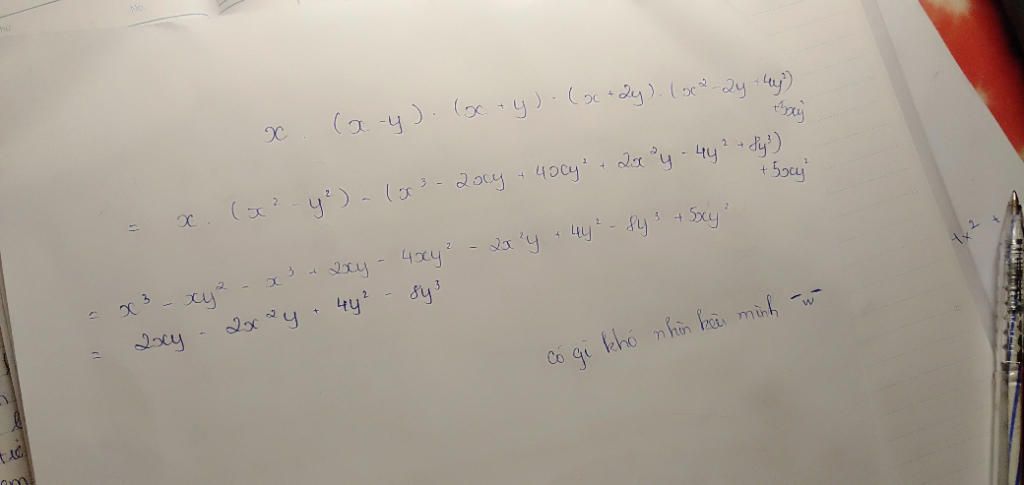 x . (x - y) . (x + y) - (x + 2y) . (x² - 2y + 4y²)
+5xy²
= x . (x² - y²) - (x³ - 2xy + 4xy² + 2x²y - 4y² + 8y³)
+ 5xy²
= x³ - xy² - x³ + 2xy - 4xy² - 2x²y + 4y² - 8y³ + 5xy²
= 2xy - 2x²y + 4y² - 8y³
có gì khó nhìn hỏi mình -w-